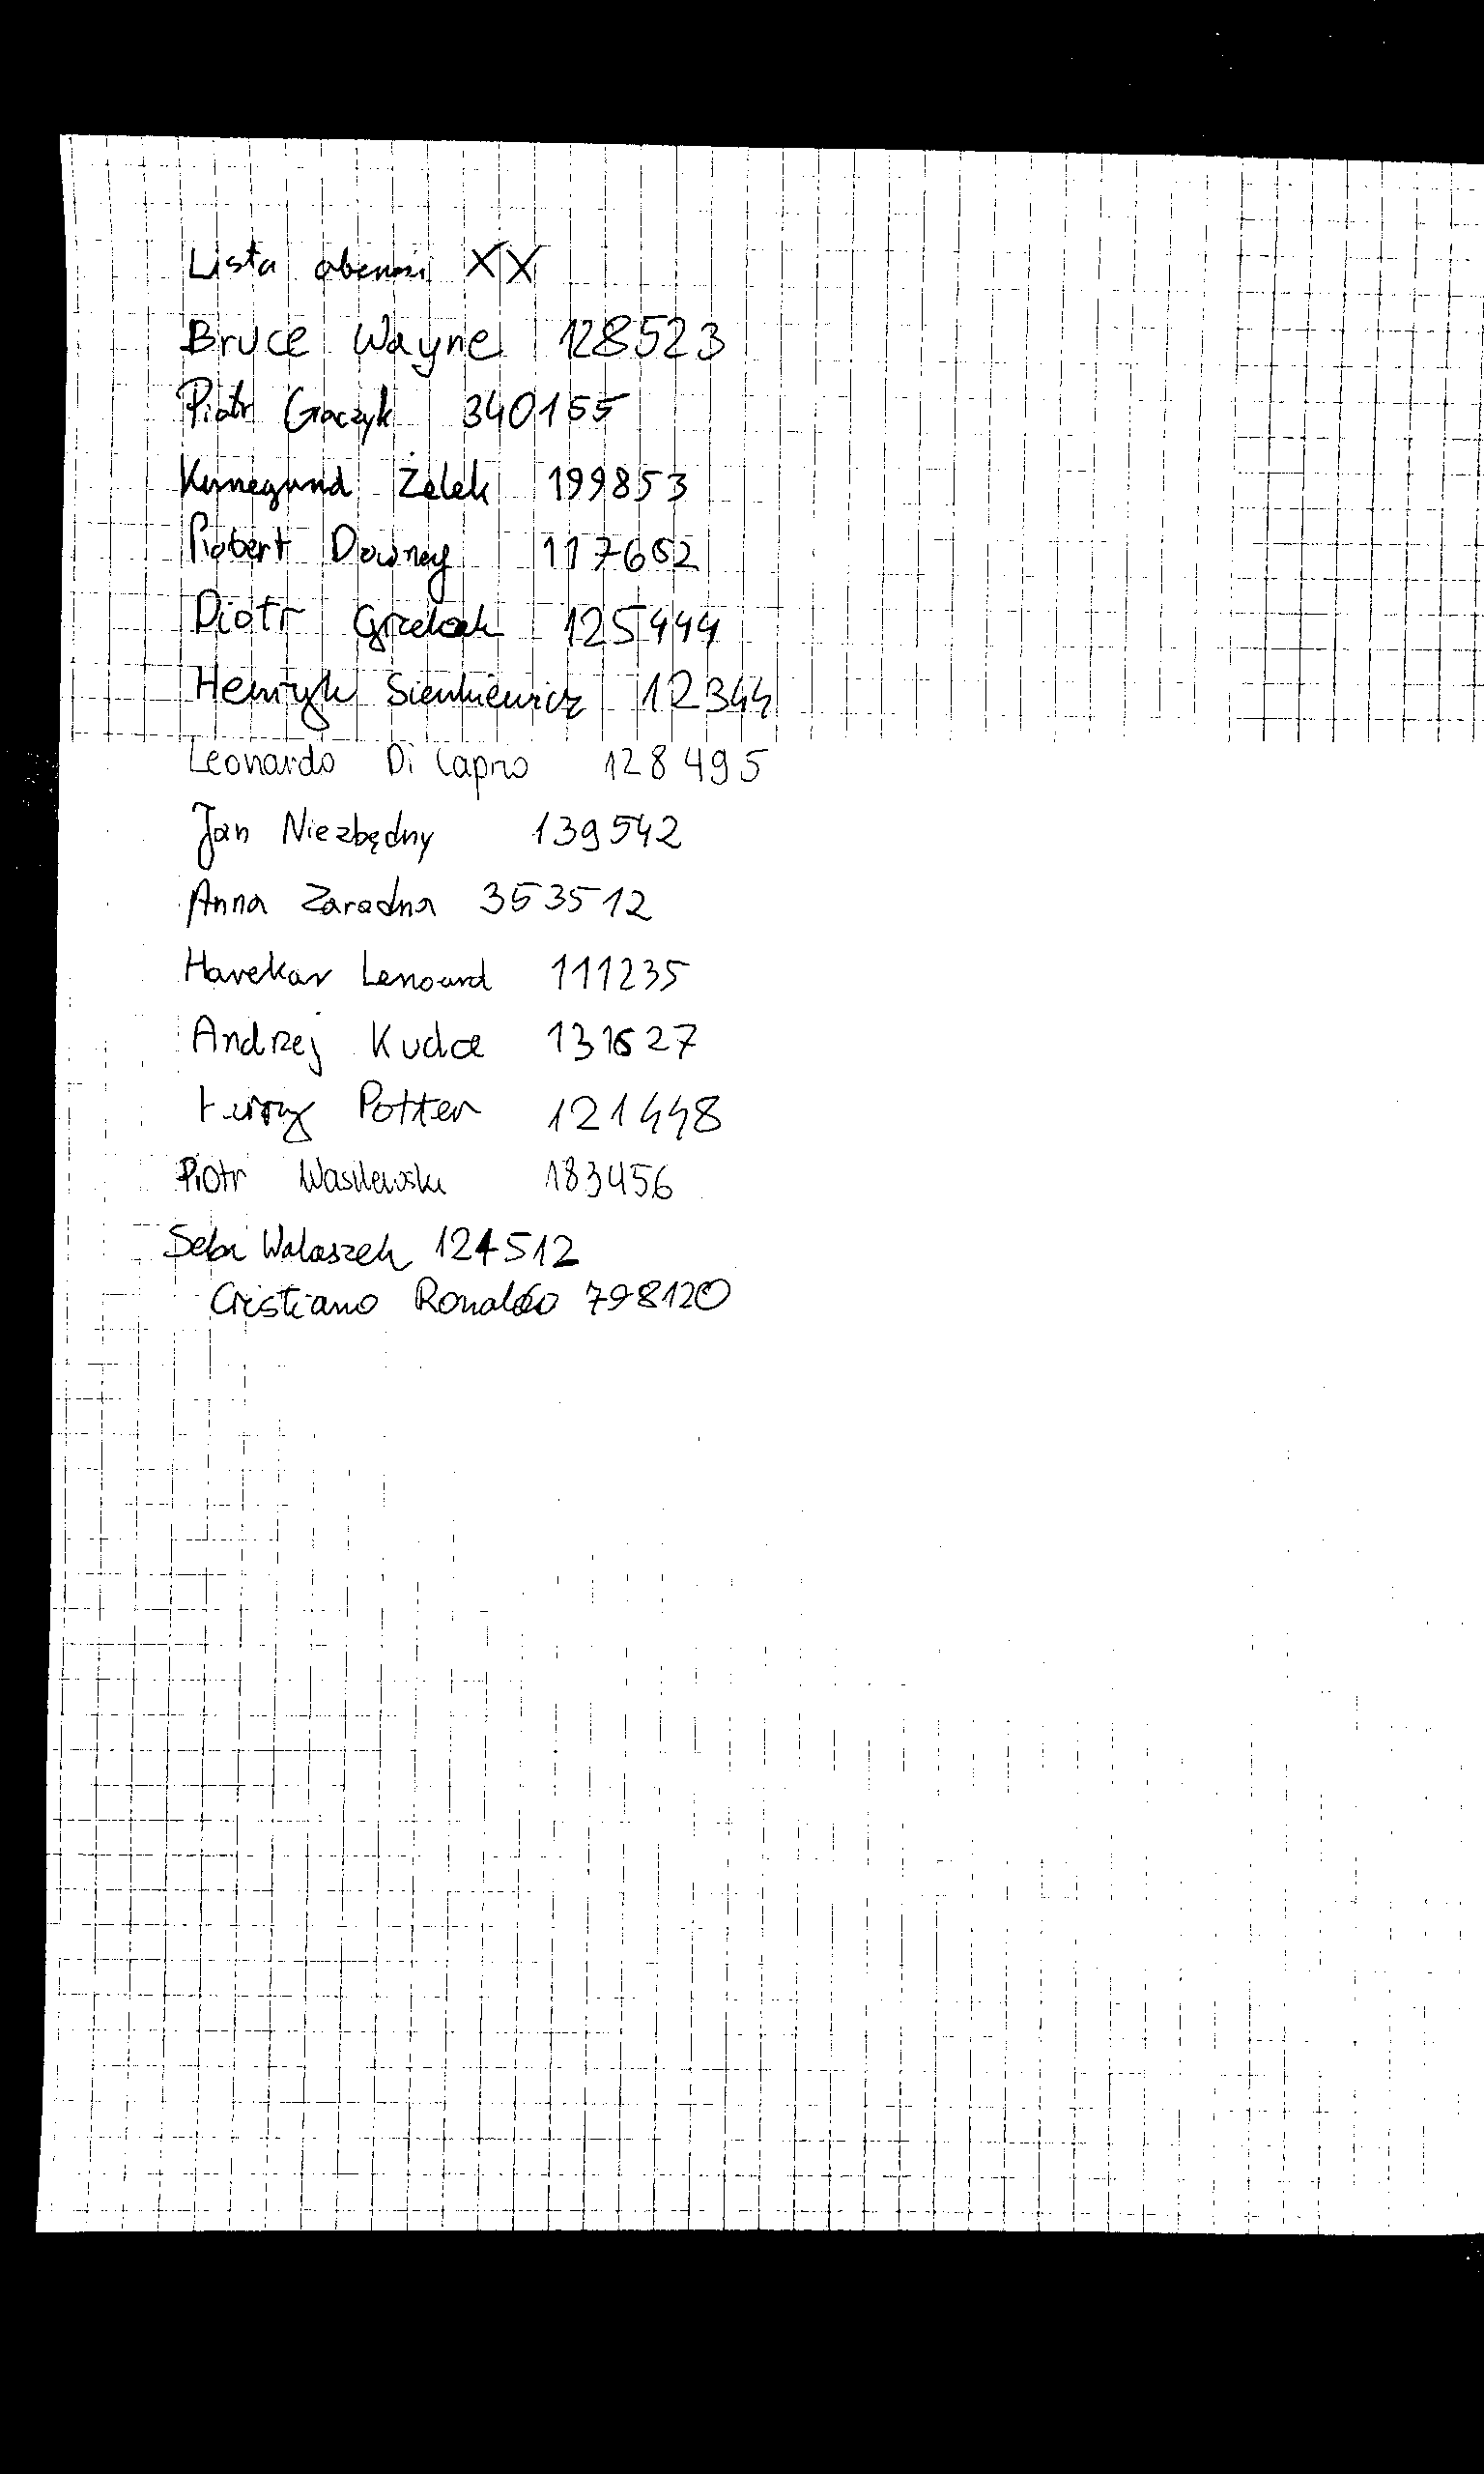 Lista obecności XX
Bruce Wayne 128523
Piotr Graczyk 340155
Kunegund Żelek 199853
Robert Downey 117652
Piotr 125444
Henryk Sienkiewicz 12344
Leonardo Di Caprio 128495
Jan Niezbędny 139542
Anna Zaradna 353512
Harekar Lenoard 111235
Andrzej Kuda 131627
Potter 121448
Piotr Wasilewski 183456
Seba Walaszek 124512
Cristiano Ronaldo 798120